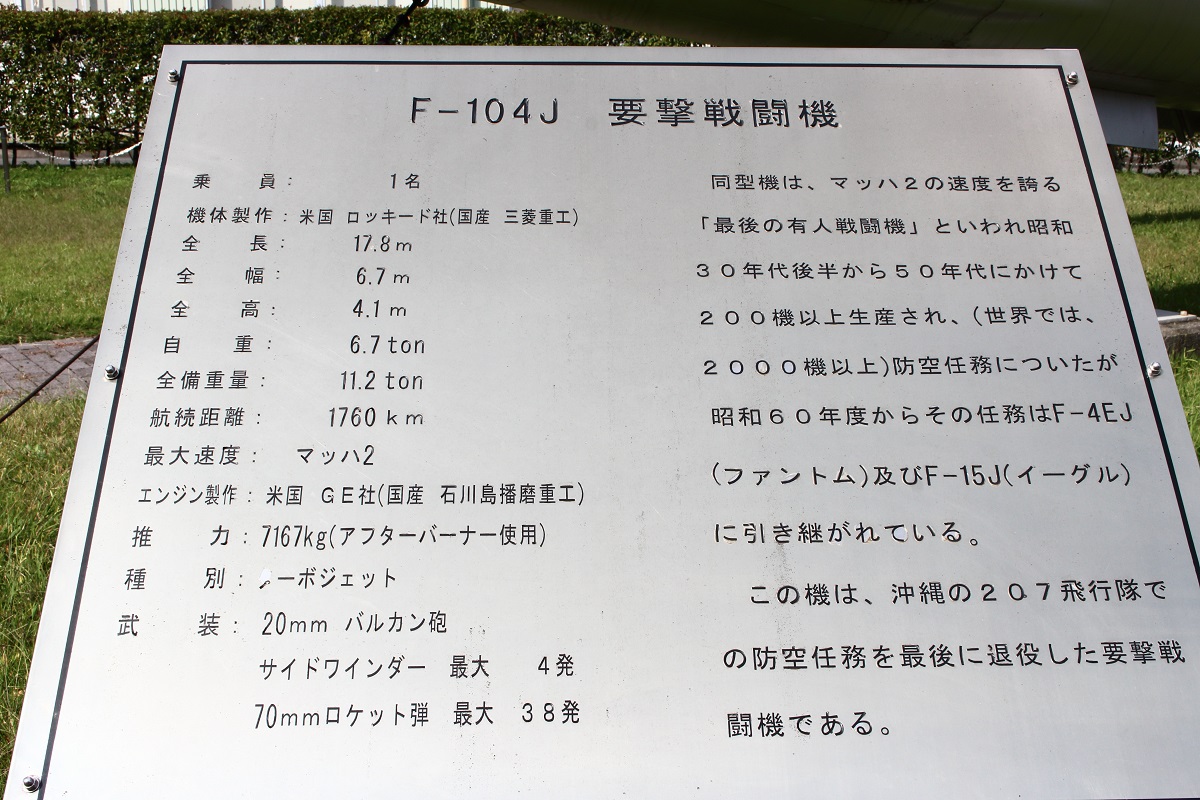 F-104J 要撃戦闘機
乗 員: 1名
機体製作: 米国 ロッキード社(国産 三菱重工)
全 長: 17.8m
全 幅: 6.7m
全 高: 4.1m
自 重: 6.7ton
全備重量: 11.2ton
航続距離: 1760km
最大速度: マッハ2
エンジン製作: 米国 GE社(国産 石川島播磨重工)
推 力: 7167kg(アフターバーナー使用)
種 別: ターボジェット
武 装: 20mm バルカン砲
サイドワインダー 最大 4発
70mmロケット弾 最大 38発
同型機は、マッハ2の速度を誇る
「最後の有人戦闘機」といわれ昭和
30年代後半から50年代にかけて
200機以上生産され、(世界では、
2000機以上)防空任務についたが
昭和60年度からその任務はF-4EJ
(ファントム)及びF-15J(イーグル)
に引き継がれている。
この機は、沖縄の207飛行隊で
の防空任務を最後に退役した要撃戦
闘機である。